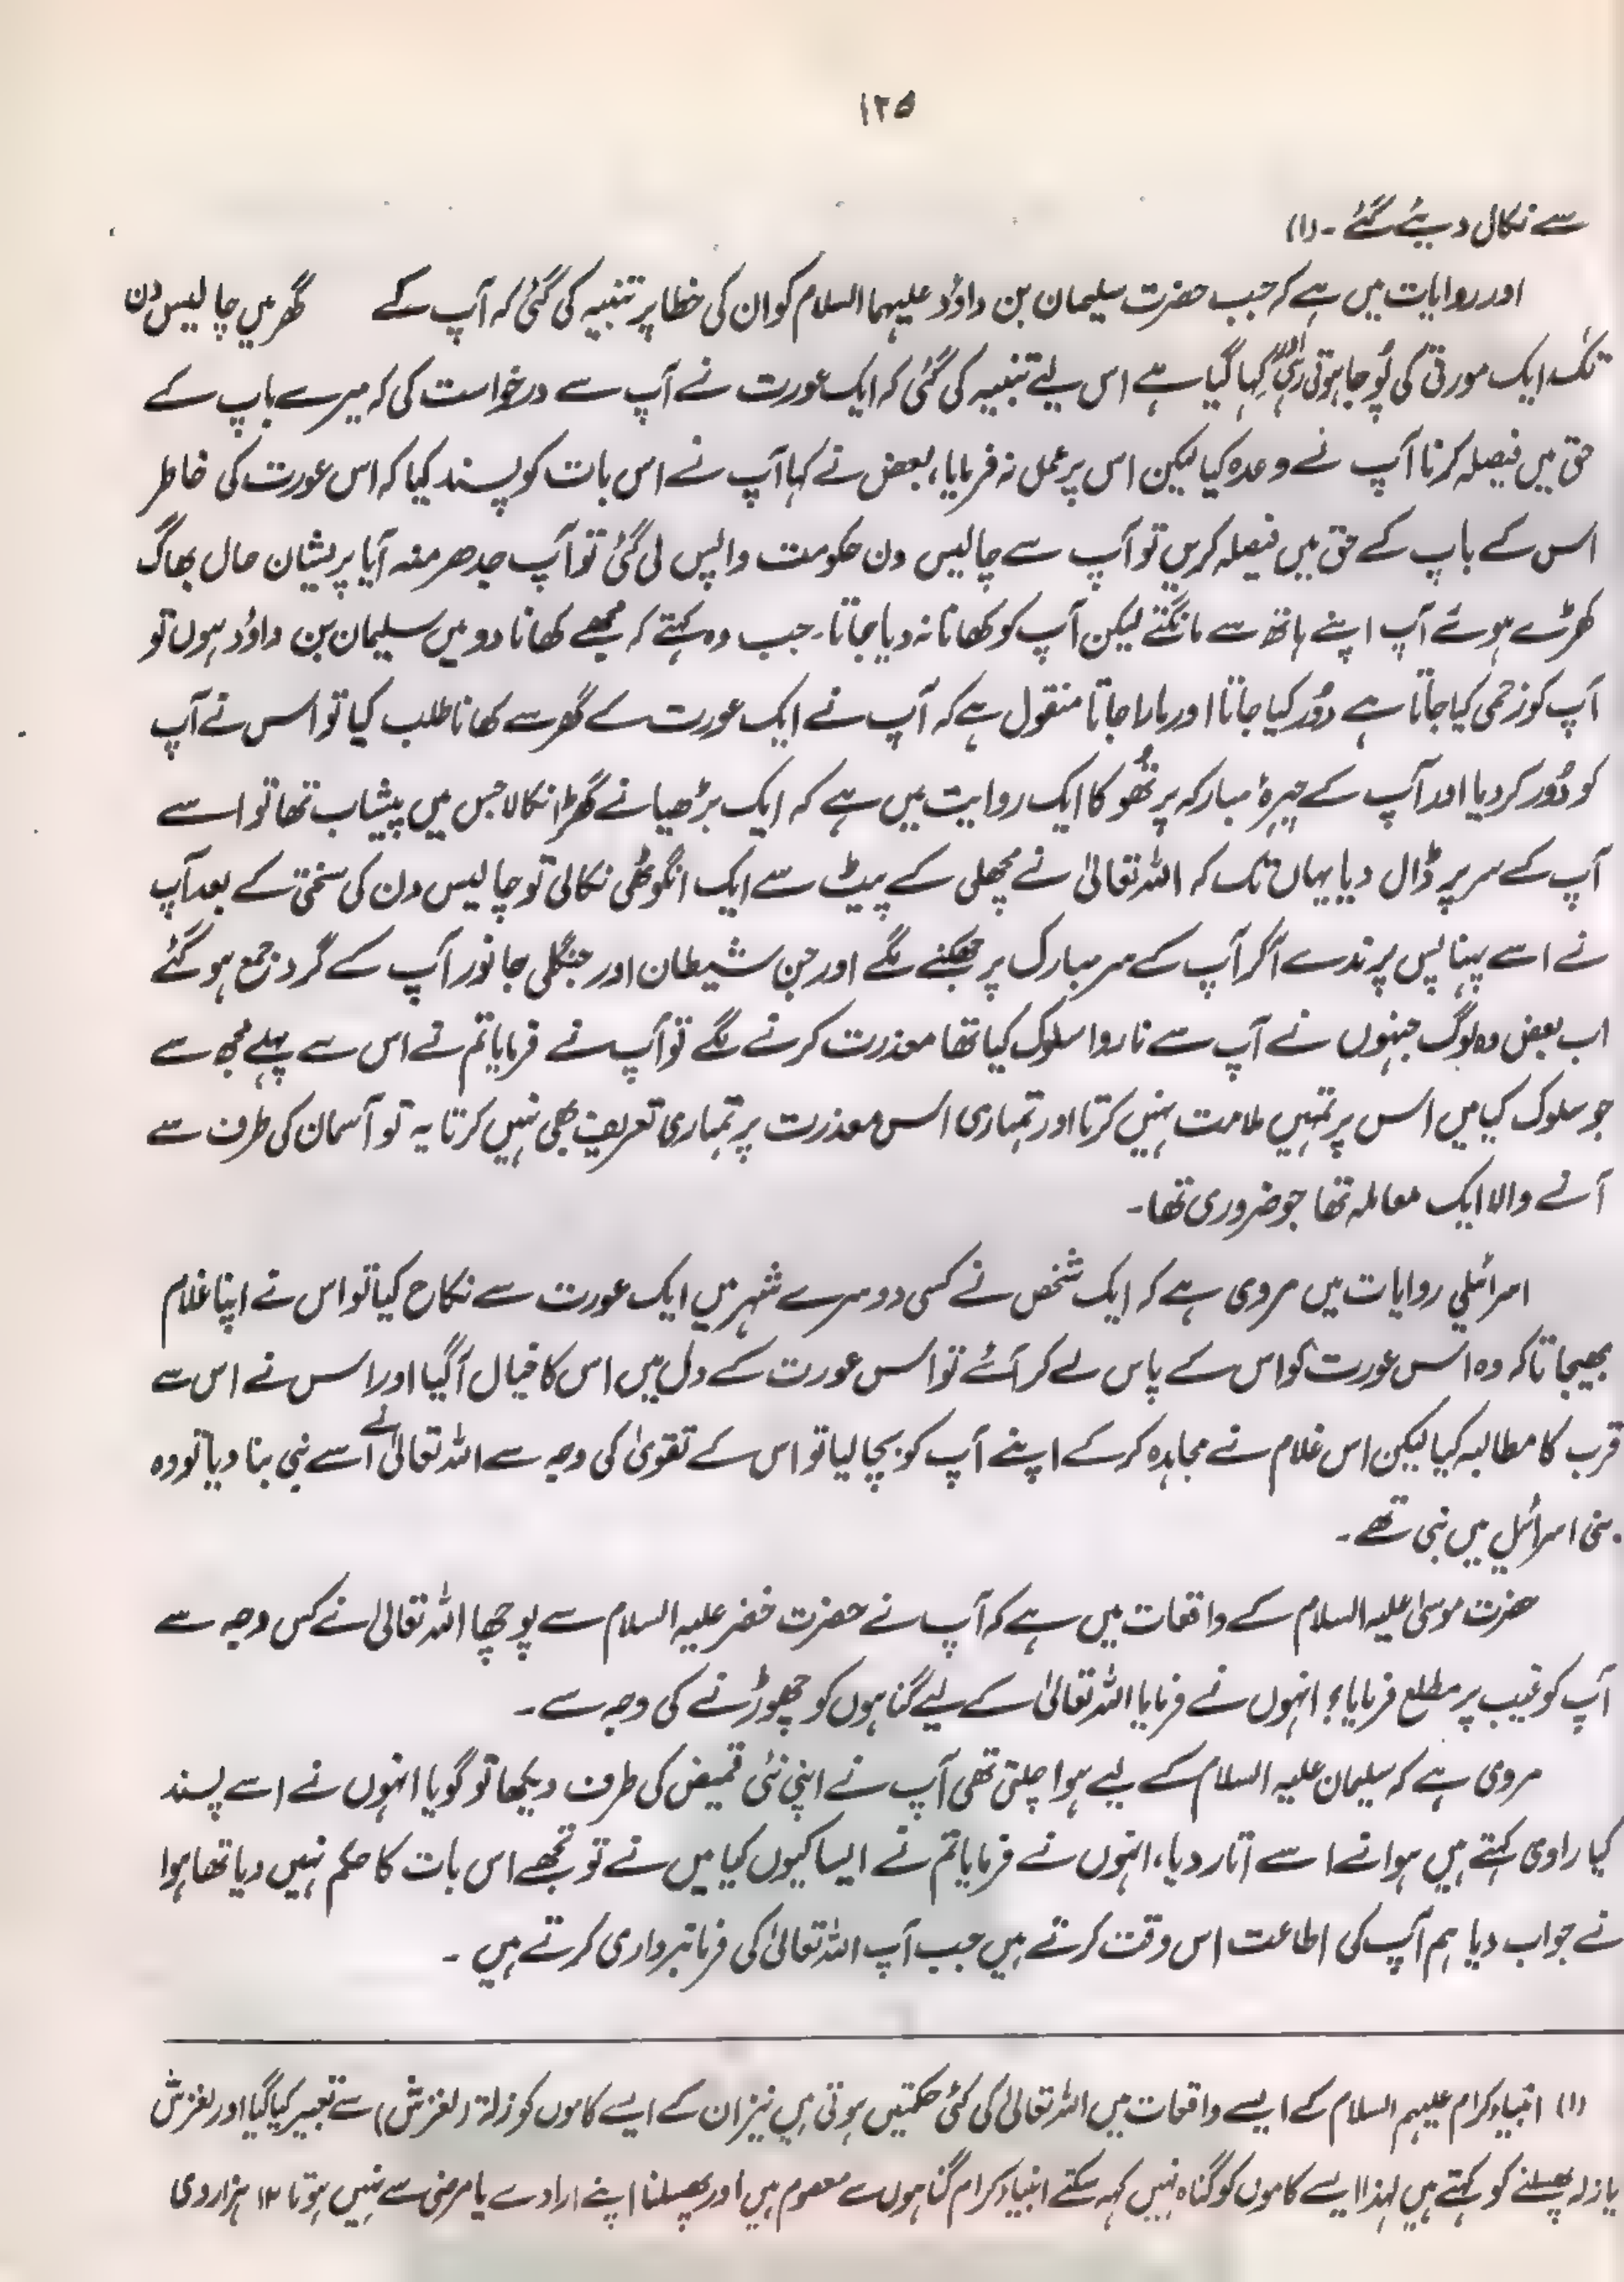 ۱۲۵
سے نکال دیئے گئے ۔ (۱)
اور روایات میں ہے کہ جب حضرت سلیمان بن داوٗد علیہما السلام کو ان کی خطا پر تنبیہ کی گئی کہ آپ کے گھر میں چالیس دن
تک ایک مورتی کی پُوجا ہوتی رہی کہا گیا ہے اس لیے تنبیہ کی گئی کہ ایک عورت نے آپ سے درخواست کی کہ میرے باپ کے
حق میں فیصلہ کرنا آپ نے وعدہ کیا لیکن اس پر عمل نہ فرمایا، بعض نے کہا آپ نے اس بات کو پسند کیا کہ اس عورت کی خاطر
اس کے باپ کے حق میں فیصلہ کریں تو آپ سے چالیس دن حکومت واپس لی گئی تو آپ جدھر منہ آیا پریشان حال بھاگ
کھڑے ہوئے آپ اپنے ہاتھ سے مانگتے لیکن آپ کو کھانا نہ دیا جاتا۔ جب وہ کہتے کہ مجھے کھانا دو میں سلیمان بن داوٗد ہوں تو
آپ کو زخمی کیا جاتا ہے دُور کیا جاتا اور مارا جاتا منقول ہے کہ آپ نے ایک عورت کے گھر سے کھانا طلب کیا تو اس نے آپ
کو دُور کر دیا اور آپ کے چہرۂ مبارکہ پر تھُوکا ایک روایت میں ہے کہ ایک بڑھیا نے گھڑا نکالا جس میں پیشاب تھا تو اسے
آپ کے سر پر ڈال دیا یہاں تک کہ اللہ تعالیٰ نے مچھلی کے پیٹ سے ایک انگوٹھی نکالی تو چالیس دن کی سختی کے بعد آپ
نے اسے پہنا پس پرندے آکر آپ کے سر مبارک پر جھکنے لگے اور جن شیطان اور جنگلی جانور آپ کے گرد جمع ہو گئے
اب بعض وہ لوگ جنہوں نے آپ سے ناروا سلوک کیا تھا معذرت کرنے لگے تو آپ نے فرمایا تم نے اس سے پہلے مجھ سے
جو سلوک کیا میں اس پر تمہیں ملامت نہیں کرتا اور تمہاری اس معذرت پر تمہاری تعریف بھی نہیں کرتا یہ تو آسمان کی طرف سے
آنے والا ایک معاملہ تھا جو ضروری تھا۔
اسرائلی روایات میں مروی ہے کہ ایک شخص نے کسی دوسرے شہر میں ایک عورت سے نکاح کیا تو اس نے اپنا غلام
بھیجا تاکہ وہ اس عورت کو اس کے پاس لے کر آئے تو اس عورت کے دل میں اس کا خیال آگیا اور اس نے اس سے
قرب کا مطالبہ کیا لیکن اس غلام نے مجاہدہ کرکے اپنے آپ کو بچا لیا تو اس کے تقویٰ کی وجہ سے اللہ تعالیٰ نے اسے نبی بنا دیا تو وہ
بنی اسرائیل میں نبی تھے۔
حضرت موسیٰ علیہ السلام کے واقعات میں ہے کہ آپ نے حضرت خضر علیہ السلام سے پوچھا اللہ تعالیٰ نے کس وجہ سے
آپ کو غیب پر مطلع فرمایا؟ انہوں نے فرمایا اللہ تعالیٰ کے لیے گناہوں کو چھوڑنے کی وجہ سے۔
مروی ہے کہ سلیمان علیہ السلام کے لیے ہوا چلتی تھی آپ نے اپنی نئی قمیض کی طرف دیکھا تو گویا انہوں نے اسے پسند
کیا راوی کہتے ہیں ہوا نے اسے اتار دیا، انہوں نے فرمایا تم نے ایسا کیوں کیا میں نے تو تجھے اس بات کا حکم نہیں دیا تھا ہوا
نے جواب دیا ہم آپ کی اطاعت اس وقت کرتے ہیں جب آپ اللہ تعالیٰ کی فرمانبرداری کرتے ہیں ۔
(۱) انبیاء کرام علیہم السلام کے ایسے واقعات میں اللہ تعالیٰ کی کئی حکمتیں ہوتی ہیں نیز ان کے ایسے کاموں کو زلۃ (لغزش) سے تعبیر کیا گیا اور لغزش
یا زلہ پھسلنے کو کہتے ہیں لہذا ایسے کاموں کو گناہ نہیں کہہ سکتے انبیاء کرام گناہوں سے معصوم ہیں اور پھسلنا اپنے ارادے یا مرضی سے نہیں ہوتا ۱۲ ہزاروی